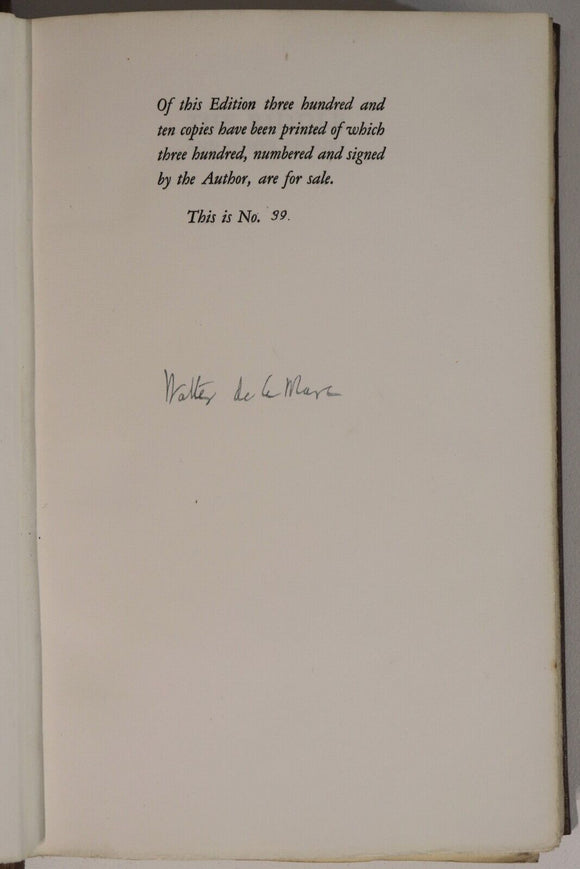 Of this Edition three hundred and
ten copies have been printed of which
three hundred, numbered and signed
by the Author, are for sale.
This is No. 39.
Walter de la Mare